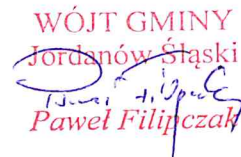 WÓJT GMINY
Jordanów Śląski
Paweł Filipczak